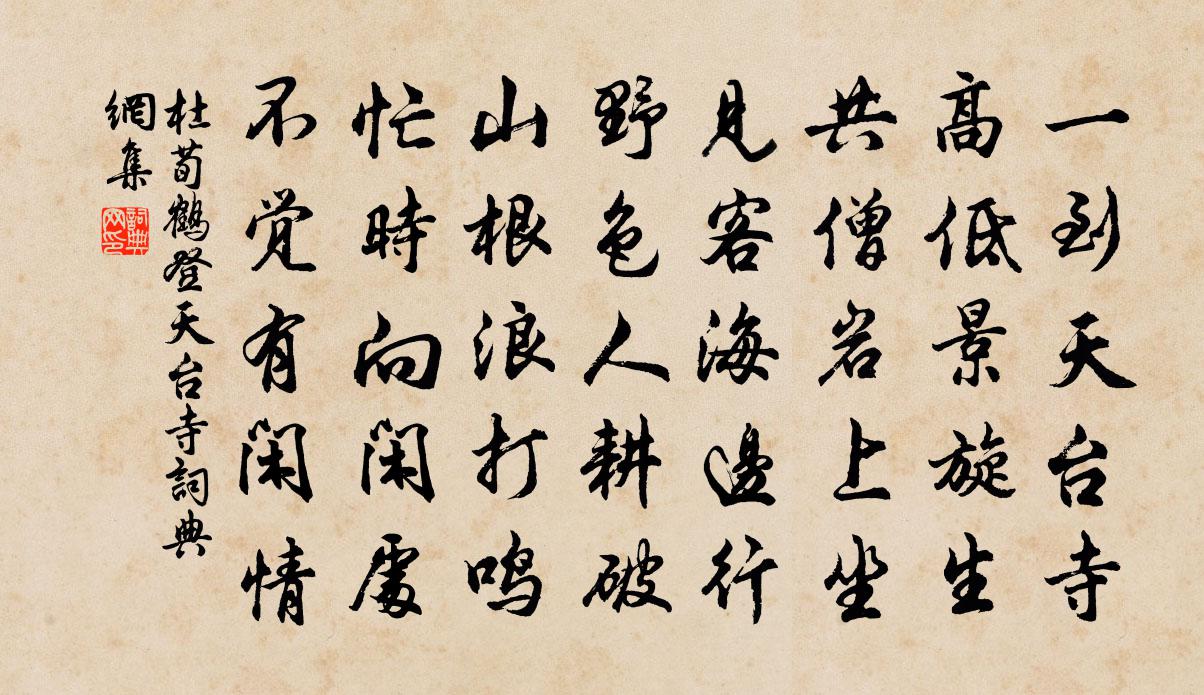 一到天台寺
高低景旋生
共僧岩上坐
見客海邊行
野色人耕破
山根浪打鸣
忙時向闲處
不觉有闲情
杜荀鶴登天台寺詞典
網集
詞典
网印